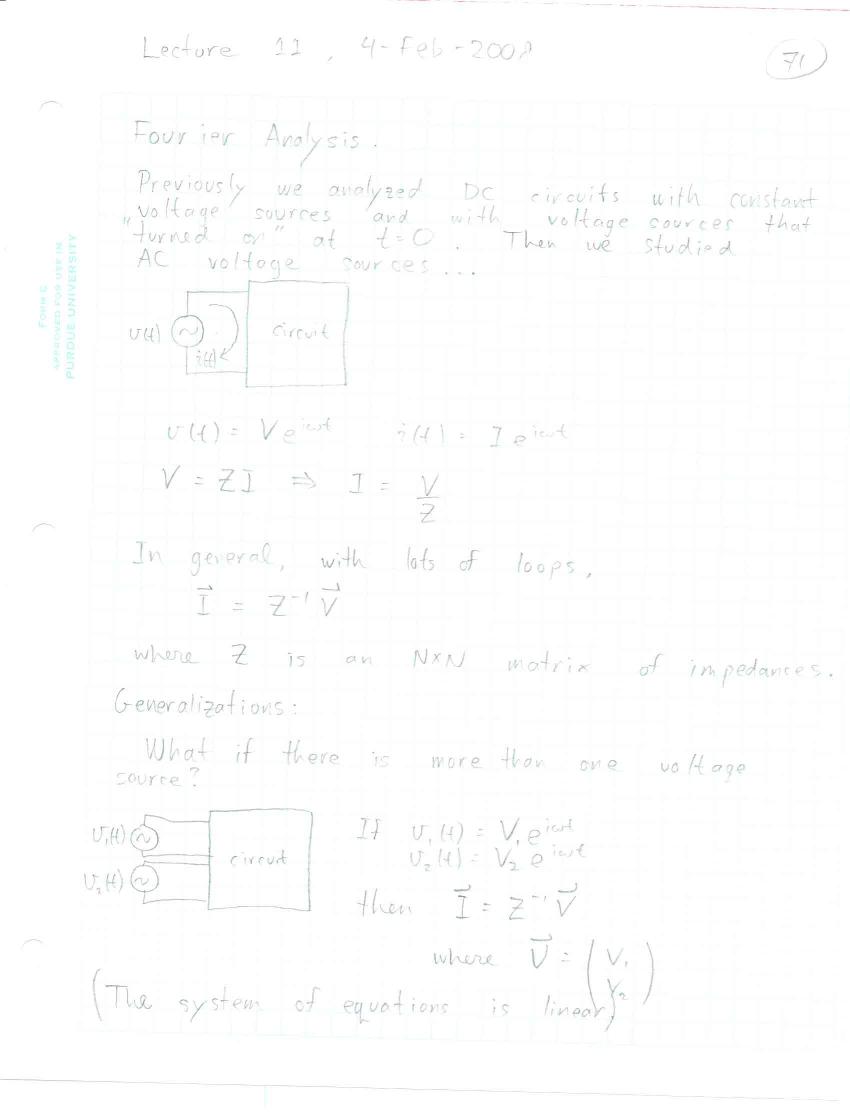 Lecture 11, 4-Feb-2008
71
Fourier Analysis.
Previously we analyzed DC circuits with constant
voltage sources and with voltage sources that
"turned on" at t=0. Then we studied
AC voltage sources...
FORM C
APPROVED FOR USE IN
PURDUE UNIVERSITY
v(t)
i(t)
circuit
v(t) = V e^{iωt}   i(t) = I e^{iωt}
V = ZI ⇒ I = V/Z
In general, with lots of loops,
I⃗ = Z⁻¹ V⃗
where Z is an N×N matrix of impedances.
Generalizations:
What if there is more than one voltage
source?
v₁(t)
v₂(t)
circuit
If v₁(t) = V₁ e^{iωt}
v₂(t) = V₂ e^{iωt}
then I⃗ = Z⁻¹ V⃗
where V⃗ = (V₁
V₂)
(The system of equations is linear)